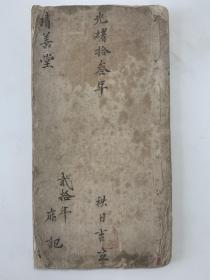 光绪拾叁年
秋日吉立
贰拾年
□記
積善堂